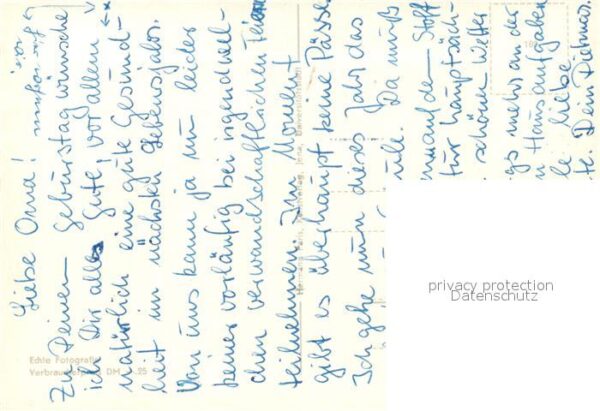 Liebe Oma!
Zu Deinem Geburtstag wünsche
ich Dir alles Gute, vor allem
natürlich eine gute Gesund-
heit im nächsten Lebensjahr.
Von uns kann ja nun leider
keiner vorläufig bei irgendwel-
chen verwandschaftlichen Feiern
teilnehmen. Im Moment
gibt es überhaupt keine Pässe
Ich gehe nun dieses Jahr das
Da muß
auf den Stoff
für hauptsäch-
schönem Wetter
mehr an der
Hausaufgaben
liebe
Dein Dietmar.
Echte Fotografie
Verbraucherpreis DM
25
privacy protection
Datenschutz